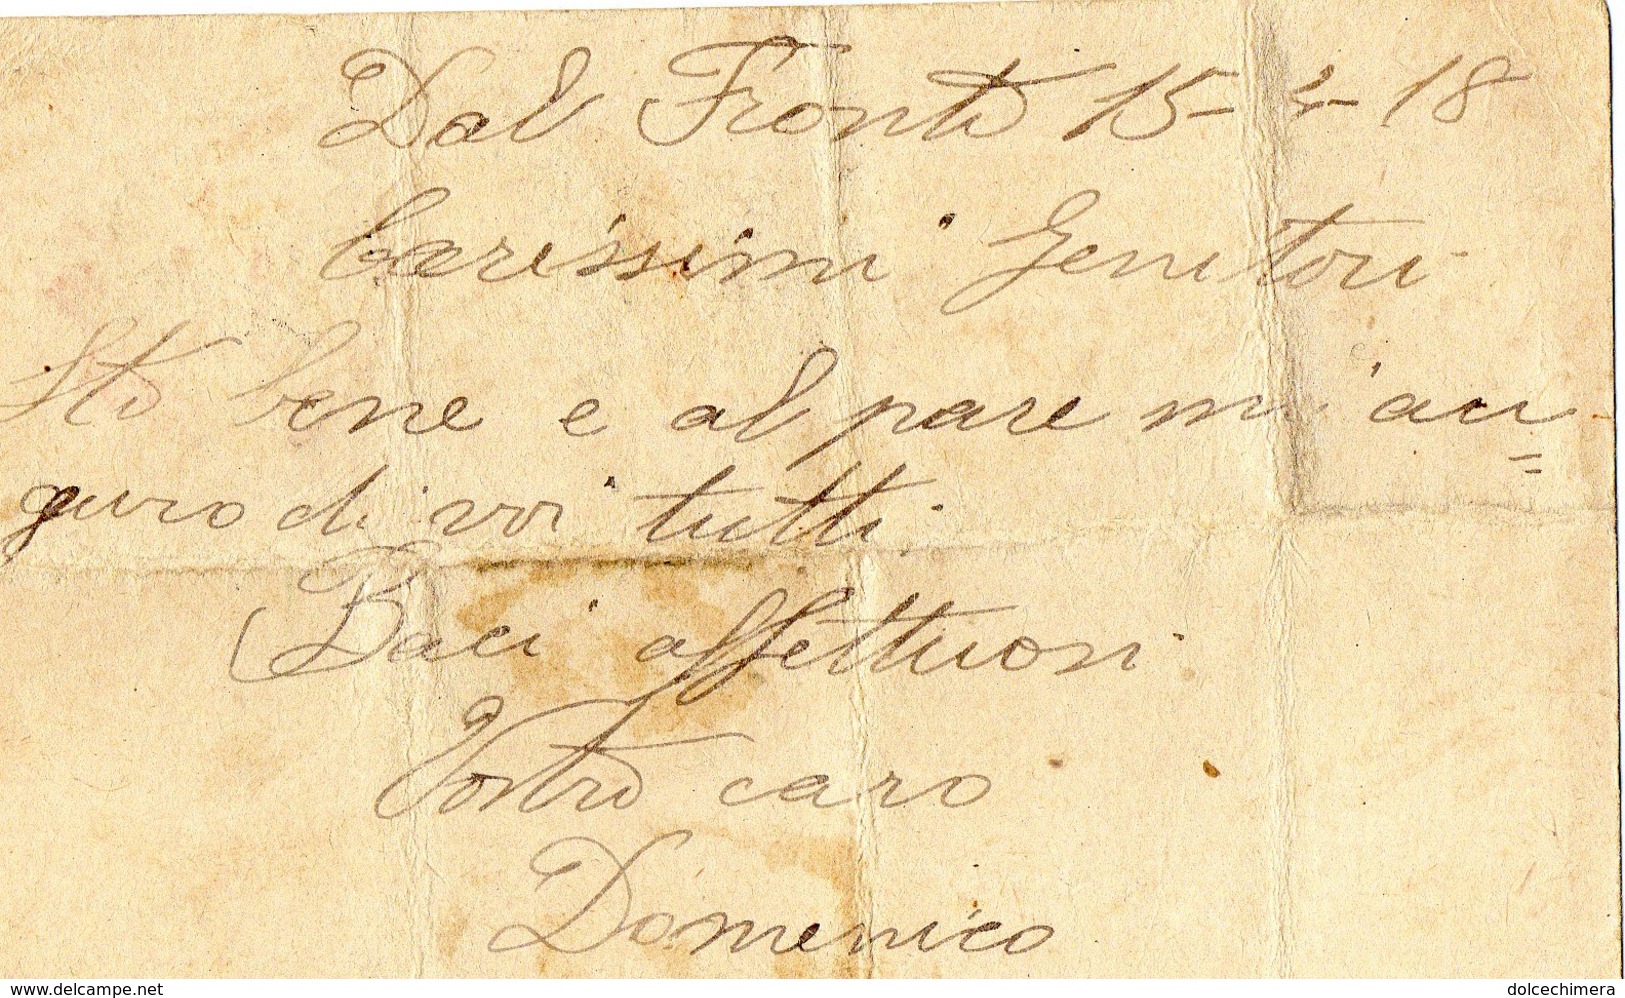 Dal Fronte 15- -18
Carissimi Genitori
Sto bene e al pare mi au=
guro di voi tutti.
Baci affettuosi
Vostro caro
Domenico
www.delcampe.net
dolcechimera